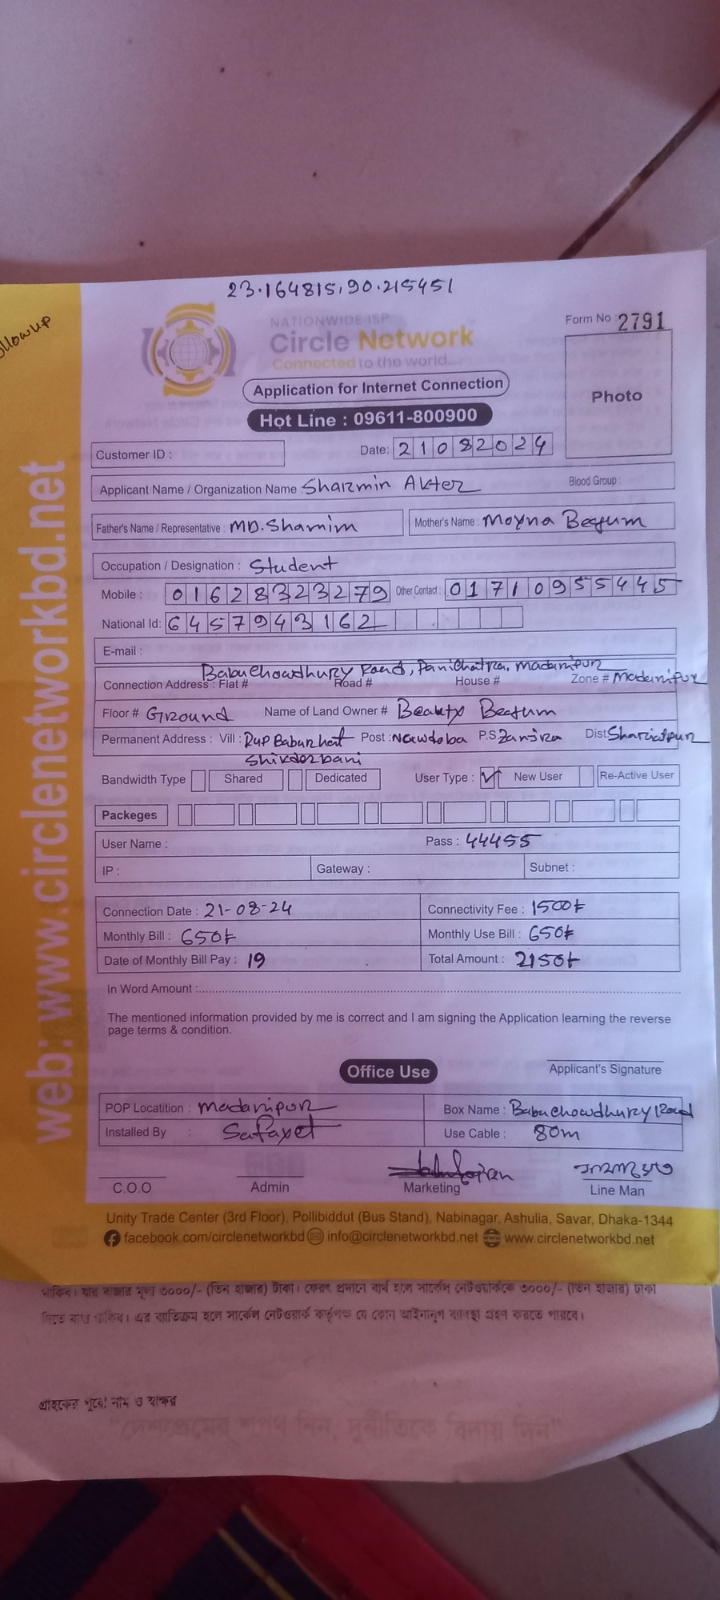 23.164815, 90.215451
ollowup
NATIONWIDE ISP
Circle Network
Connected to the world...
Form No 2791
Photo
Application for Internet Connection
Hot Line : 09611-800900
Customer ID :
Date: 21082024
Applicant Name / Organization Name Sharmin Akter Blood Group :
Father's Name / Representative : MD. Shamim Mother's Name : Moyna Begum
Occupation / Designation : Student
Mobile : 01628323279 Other Contact : 01710955445
National Id: 6457943162
E-mail :
Babu Chowdhury Road, Panichatra, Madaripur
Connection Address : Flat # Road # House # Zone # Madaripur
Floor # Ground Name of Land Owner # Beauty Begum
Permanent Address : Vill : Rup Babur hat Post : Nawdoba P.S Zanjira Dist Shariatpur
Shikderkani
Bandwidth Type Shared Dedicated User Type : ✓ New User Re-Active User
Packeges
User Name : Pass : 44455
IP : Gateway : Subnet :
Connection Date : 21-08-24 Connectivity Fee : 1500৳
Monthly Bill : 650৳ Monthly Use Bill : 650৳
Date of Monthly Bill Pay : 19 Total Amount : 2150৳
In Word Amount :
The mentioned information provided by me is correct and I am signing the Application learning the reverse
page terms & condition.
Office Use
Applicant's Signature
POP Locatition : Madaripur Box Name : Babu Chowdhury Road
Installed By : Safayet Use Cable : 80m
C.O.O Admin Marketing Line Man
Unity Trade Center (3rd Floor), Pollibiddut (Bus Stand), Nabinagar, Ashulia, Savar, Dhaka-1344
facebook.com/circlenetworkbd info@circlenetworkbd.net www.circlenetworkbd.net
web: www.circlenetworkbd.net
থাকিব। যার বাজার মূল্য ৩০০০/- (তিন হাজার) টাকা। ফেরৎ প্রদানে ব্যর্থ হলে সার্কেল নেটওয়ার্ককে ৩০০০/- (তিন হাজার) টাকা
দিতে বাধ্য থাকিব। এর ব্যতিক্রম হলে সার্কেল নেটওয়ার্ক কর্তৃপক্ষ যে কোন আইনানুগ ব্যবস্থা গ্রহণ করতে পারবে।
গ্রাহকের পুরো নাম ও স্বাক্ষর
"দেশপ্রেমের শপথ নিন, দুর্নীতিকে বিদায় দিন"